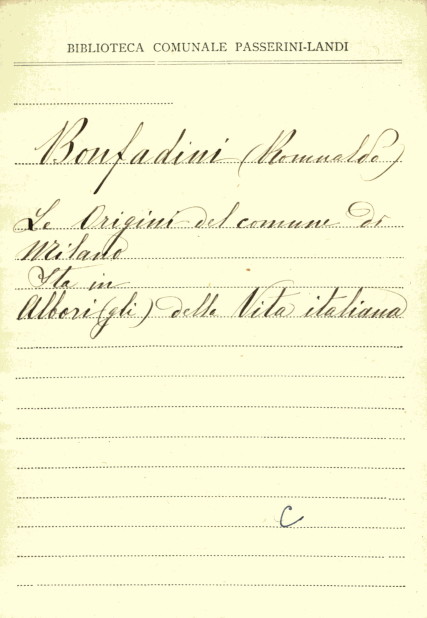 BIBLIOTECA COMUNALE PASSERINI-LANDI
Bonfadini (Romualdo)
Le Origini del comune di
Milano
Sta in
Albori (gli) della Vita italiana
C